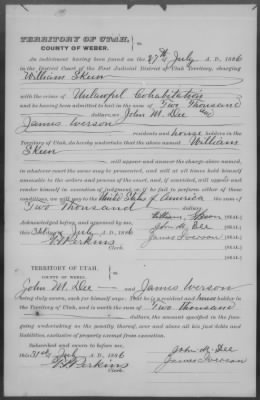 TERRITORY OF UTAH,
COUNTY OF WEBER. ss.
An indictment having been found on the 27th July A. D., 1886
in the District Court of the First Judicial District of Utah Territory, charging
William
with the crime of Unlawful Cohabitation
and he having been admitted to bail in the sum of Two Thousand
dollars, we John M. Dee and
James Iverson
residents and house holders in the
Territory of Utah, do hereby undertake that the above named William
will appear and answer the charge above named,
in whatever court the same may be prosecuted, and will at all times hold himself
amenable to the orders and process of the court, and, if convicted, will appear and
render himself in execution of judgment, or if he fail to perform either of these
conditions, we will pay to the United States of America the sum of
Two Thousand dollars
Acknowledged before, and approved by
me, this 31st day July A. D. 1886
Perkins
Clerk.
William [SEAL]
John M. Dee [SEAL]
James Iverson [SEAL]
[SEAL]
TERRITORY OF UTAH.
COUNTY OF WEBER. ss.
John M. Dee and James Iverson
being duly sworn, each for himself says: That he is a resident and house holder in
the Territory of Utah, and is worth the sum of Two thousand
dollars, the amount specified in the fore-
going undertaking as the penalty thereof, over and above all his just debts and
liabilities, exclusive of property exempt from execution.
Subscribed and sworn to before me,
this 31st July A. D. 1886
Perkins
Clerk.
John M. Dee
James Iverson